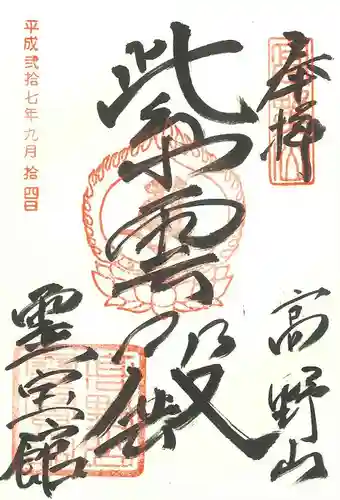 奉拝
高野山
紫雲殿
霊宝館
平成弐拾七年九月拾四日